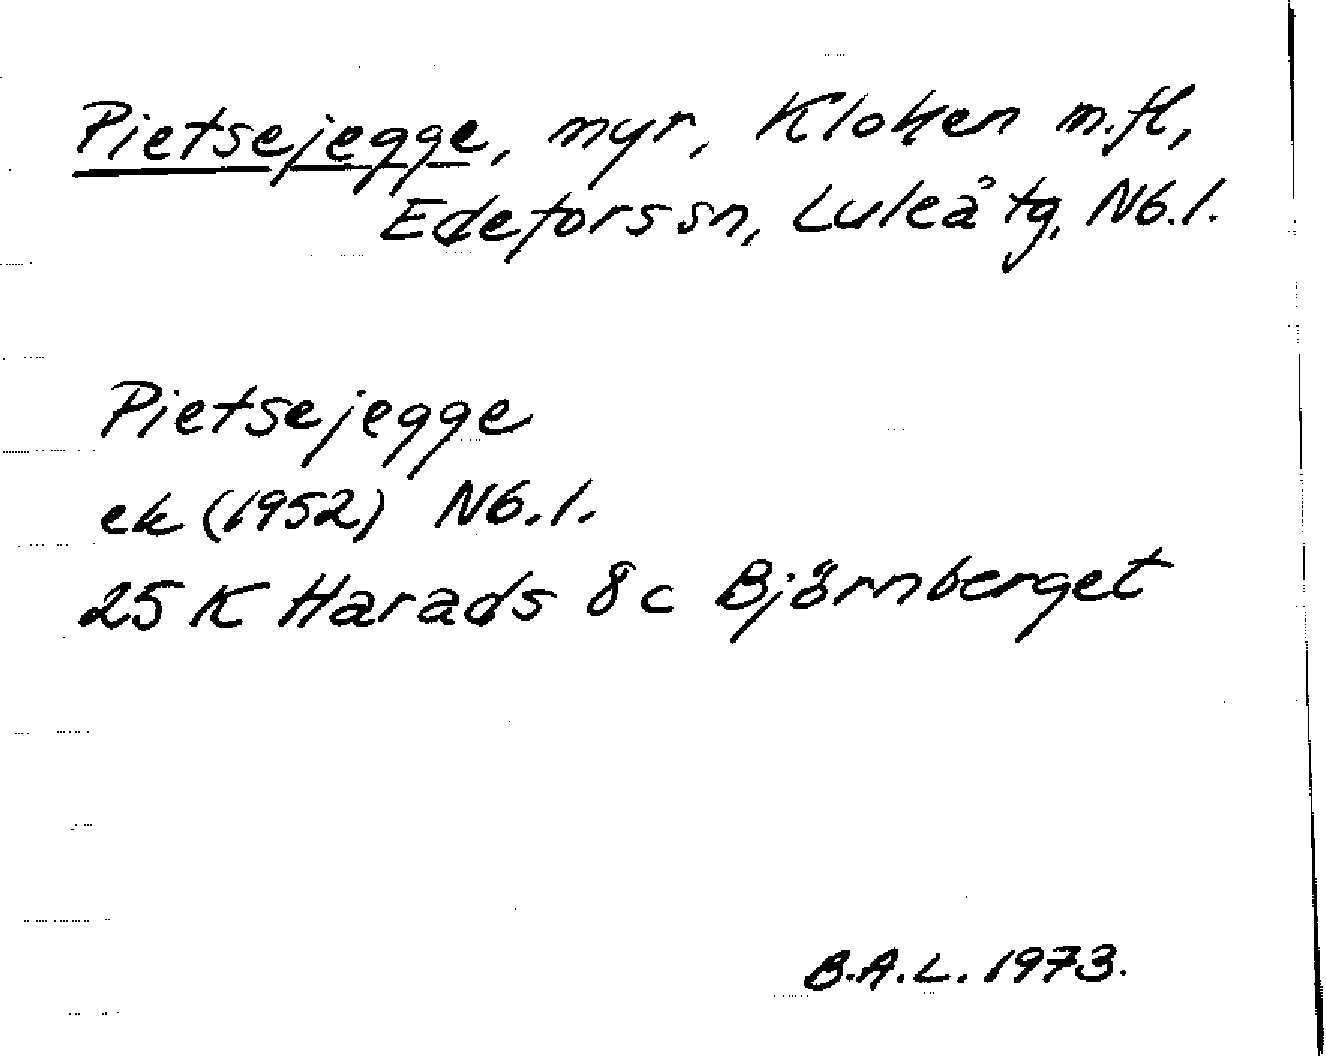 Pietsejegge, myr, Kloken m.fl,
Edefors sn, Luleå tg, Nb.l.
Pietsejegge
ek (1952) Nb.l.
25 K Harads 8c Björnberget
B.A.L. 1973.